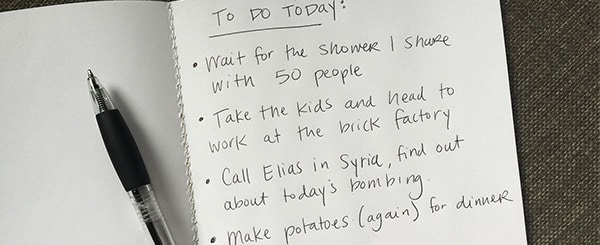 TO DO TODAY:
• Wait for the shower I share
with 50 people
• Take the kids and head to
work at the brick factory
• Call Elias in Syria, find out
about today's bombing.
• Make potatoes (again) for dinner